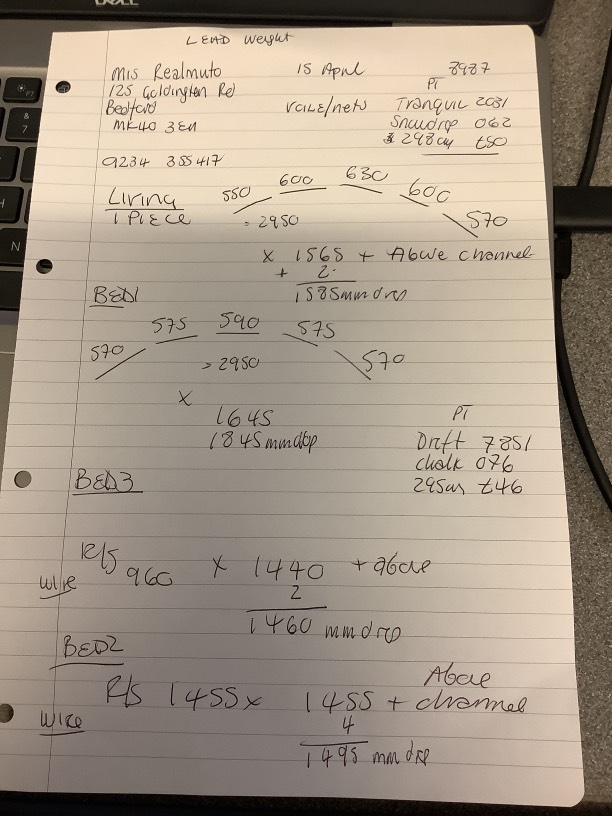 LEAD weight
Mis Realmuto 15 April 8987
125 Goldington Rd PT
Bedford voile/nets Tranquil 2031
MK40 3EN Snowdrop 062
298cm t50
9234 355417
Living 550 600 630 600 570
1 PIECE = 2950
x 1565 + Above channel
+ 2
1585mm drop
BED1
570 575 590 575 570
= 2950
x
1645
1845mm drop
PT
Drift 7851
chalk 076
295cm t46
BED3
R/S 960 x 1440 + above
wire 2
1460 mm drop
BED2
R/S 1455 x 1455 + Above channel
wire 4
1495 mm drop